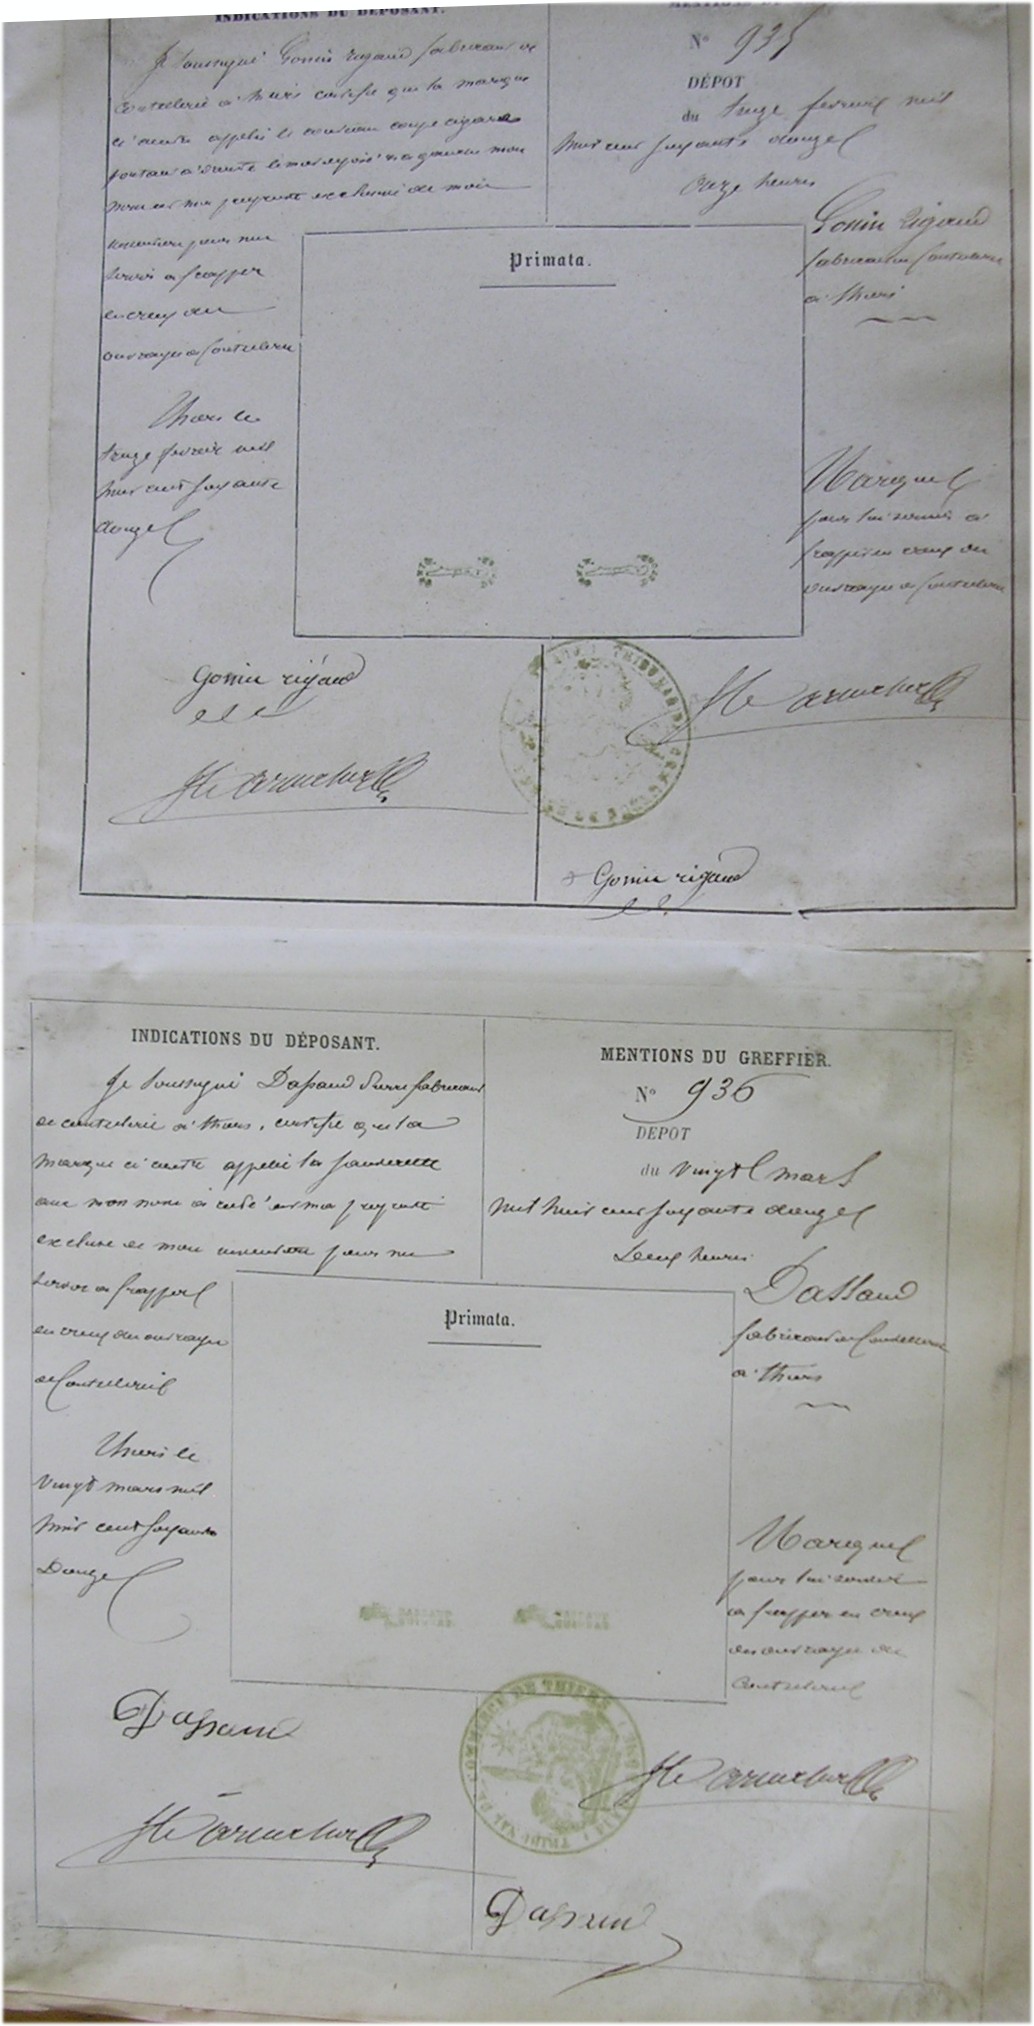 INDICATIONS DU DÉPOSANT.
Je soussigné Gonin rigaud fabricant de
coutellerie à thiers certifie que la marque
ci contre appelée le couteau coupe cigares
mon
est ma propriété exclusive de mon
invention pour me
servir a frapper
en creux des
ouvrages de Coutellerie
Thiers le
treze fevrier mil
huit cent soyante
douze
Gonin rigaud
MENTIONS DU
N° 935
DÉPOT
du treze fevrier mil
huit cent soyante douze
onze heures
Gonin rigaud
fabricant de Coutellerie
à thiers
Primata.
Marque
pour lui servir à
frapper en creux des
ouvrages de Coutellerie
Gonin rigaud
INDICATIONS DU DÉPOSANT.
Je soussigné Dassaud Pierre fabricant
de coutellerie à thiers, certifie que la
marque ci contre appelée la
avec mon nom à coté est ma propriété
exclusive de mon invention pour me
servir a frapper
en creux des ouvrages
de Coutellerie
Thiers le
vingt mars mil
huit cent soyante
Douze
Dassaud
MENTIONS DU GREFFIER.
N° 936
DÉPOT
du vingt mars
mil huit cent soyante douze
Deux heures
Dassaud
fabricant de Coutellerie
à thiers
Primata.
Marque
pour lui servir
a frapper en creux
des ouvrages de
Coutellerie
TRIBUNAL DE COMMERCE DE THIERS
Dassaud